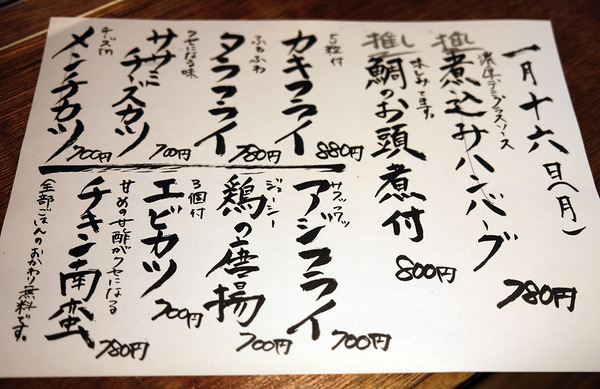 一月十六日(月)
推し煮込みハンバーグ 780円
濃厚デミグラスソース
推し鯛のお頭煮付 800円
味しみてます。
カキフライ 880円
5粒付
タラフライ 780円
ふわふわ
ササミチーズカツ 700円
クセになる味
メンチカツ 700円
アジフライ 700円
サクッフワッ
鶏の唐揚 700円
ジューシー
エビカツ 700円
3個付
チキン南蛮 780円
甘めの甘酢がクセになる
全部ごはんのおかわり無料です。